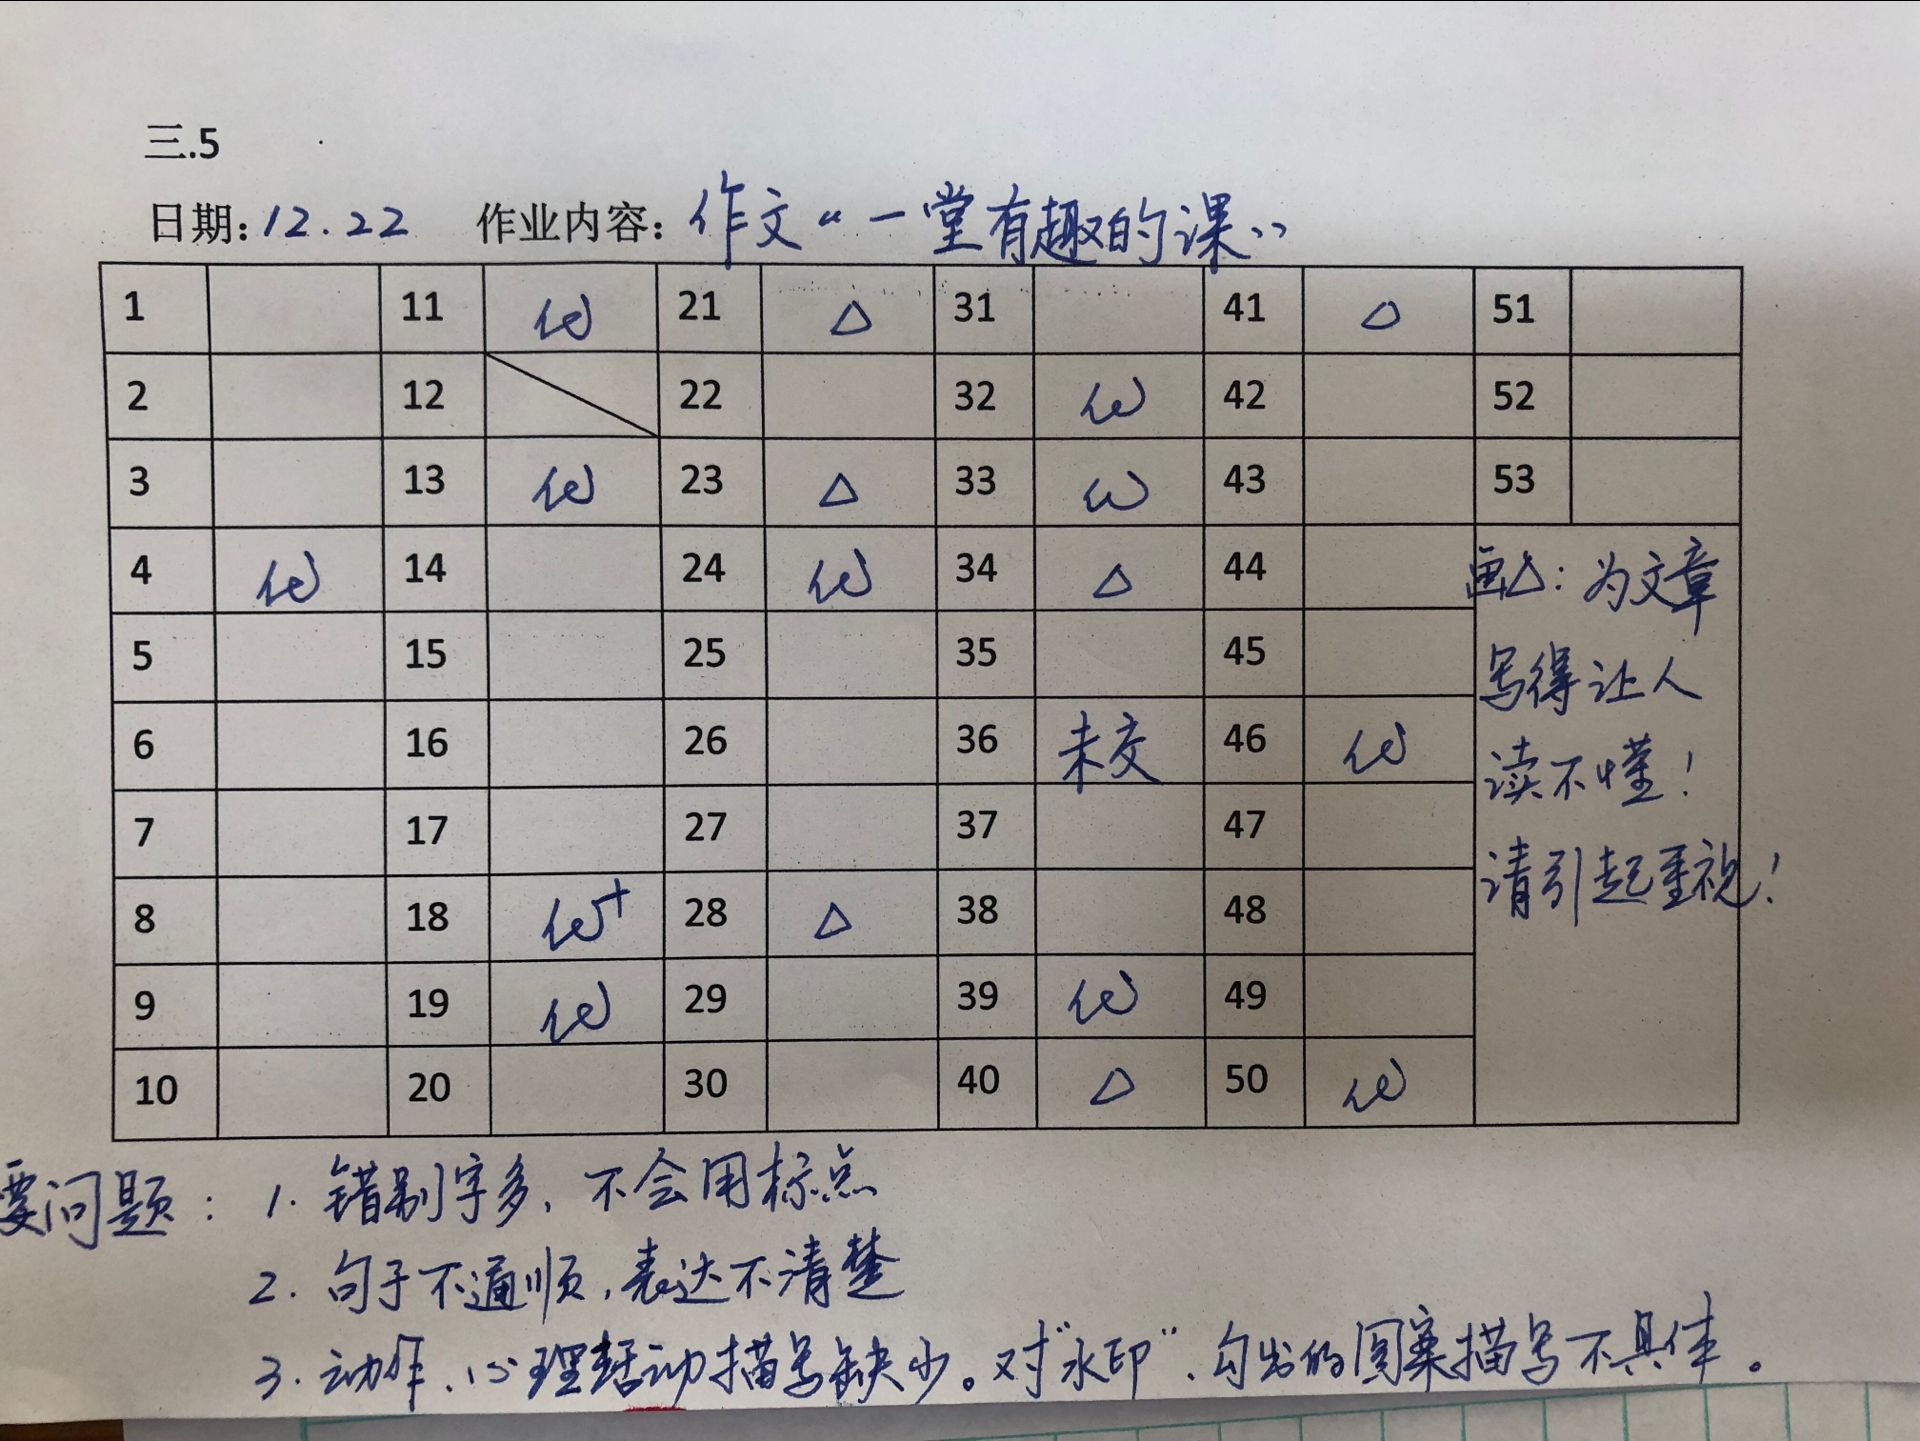 三.5
日期:12.22 作业内容:作文“一堂有趣的课”
1 11 优 21 △ 31 41 △ 51
2 12 22 32 优 42 52
3 13 优 23 △ 33 优 43 53
4 优 14 24 优 34 △ 44
5 15 25 35 45
6 16 26 36 未交 46 优
7 17 27 37 47
8 18 优+ 28 △ 38 48
9 19 优 29 39 优 49
10 20 30 40 △ 50 优
画△:为文章
写得让人
读不懂!
请引起重视!
要问题:1.错别字多,不会用标点
2.句子不通顺,表达不清楚
3.动作、心理活动描写缺少。对“水印”、勾出的图案描写不具体。